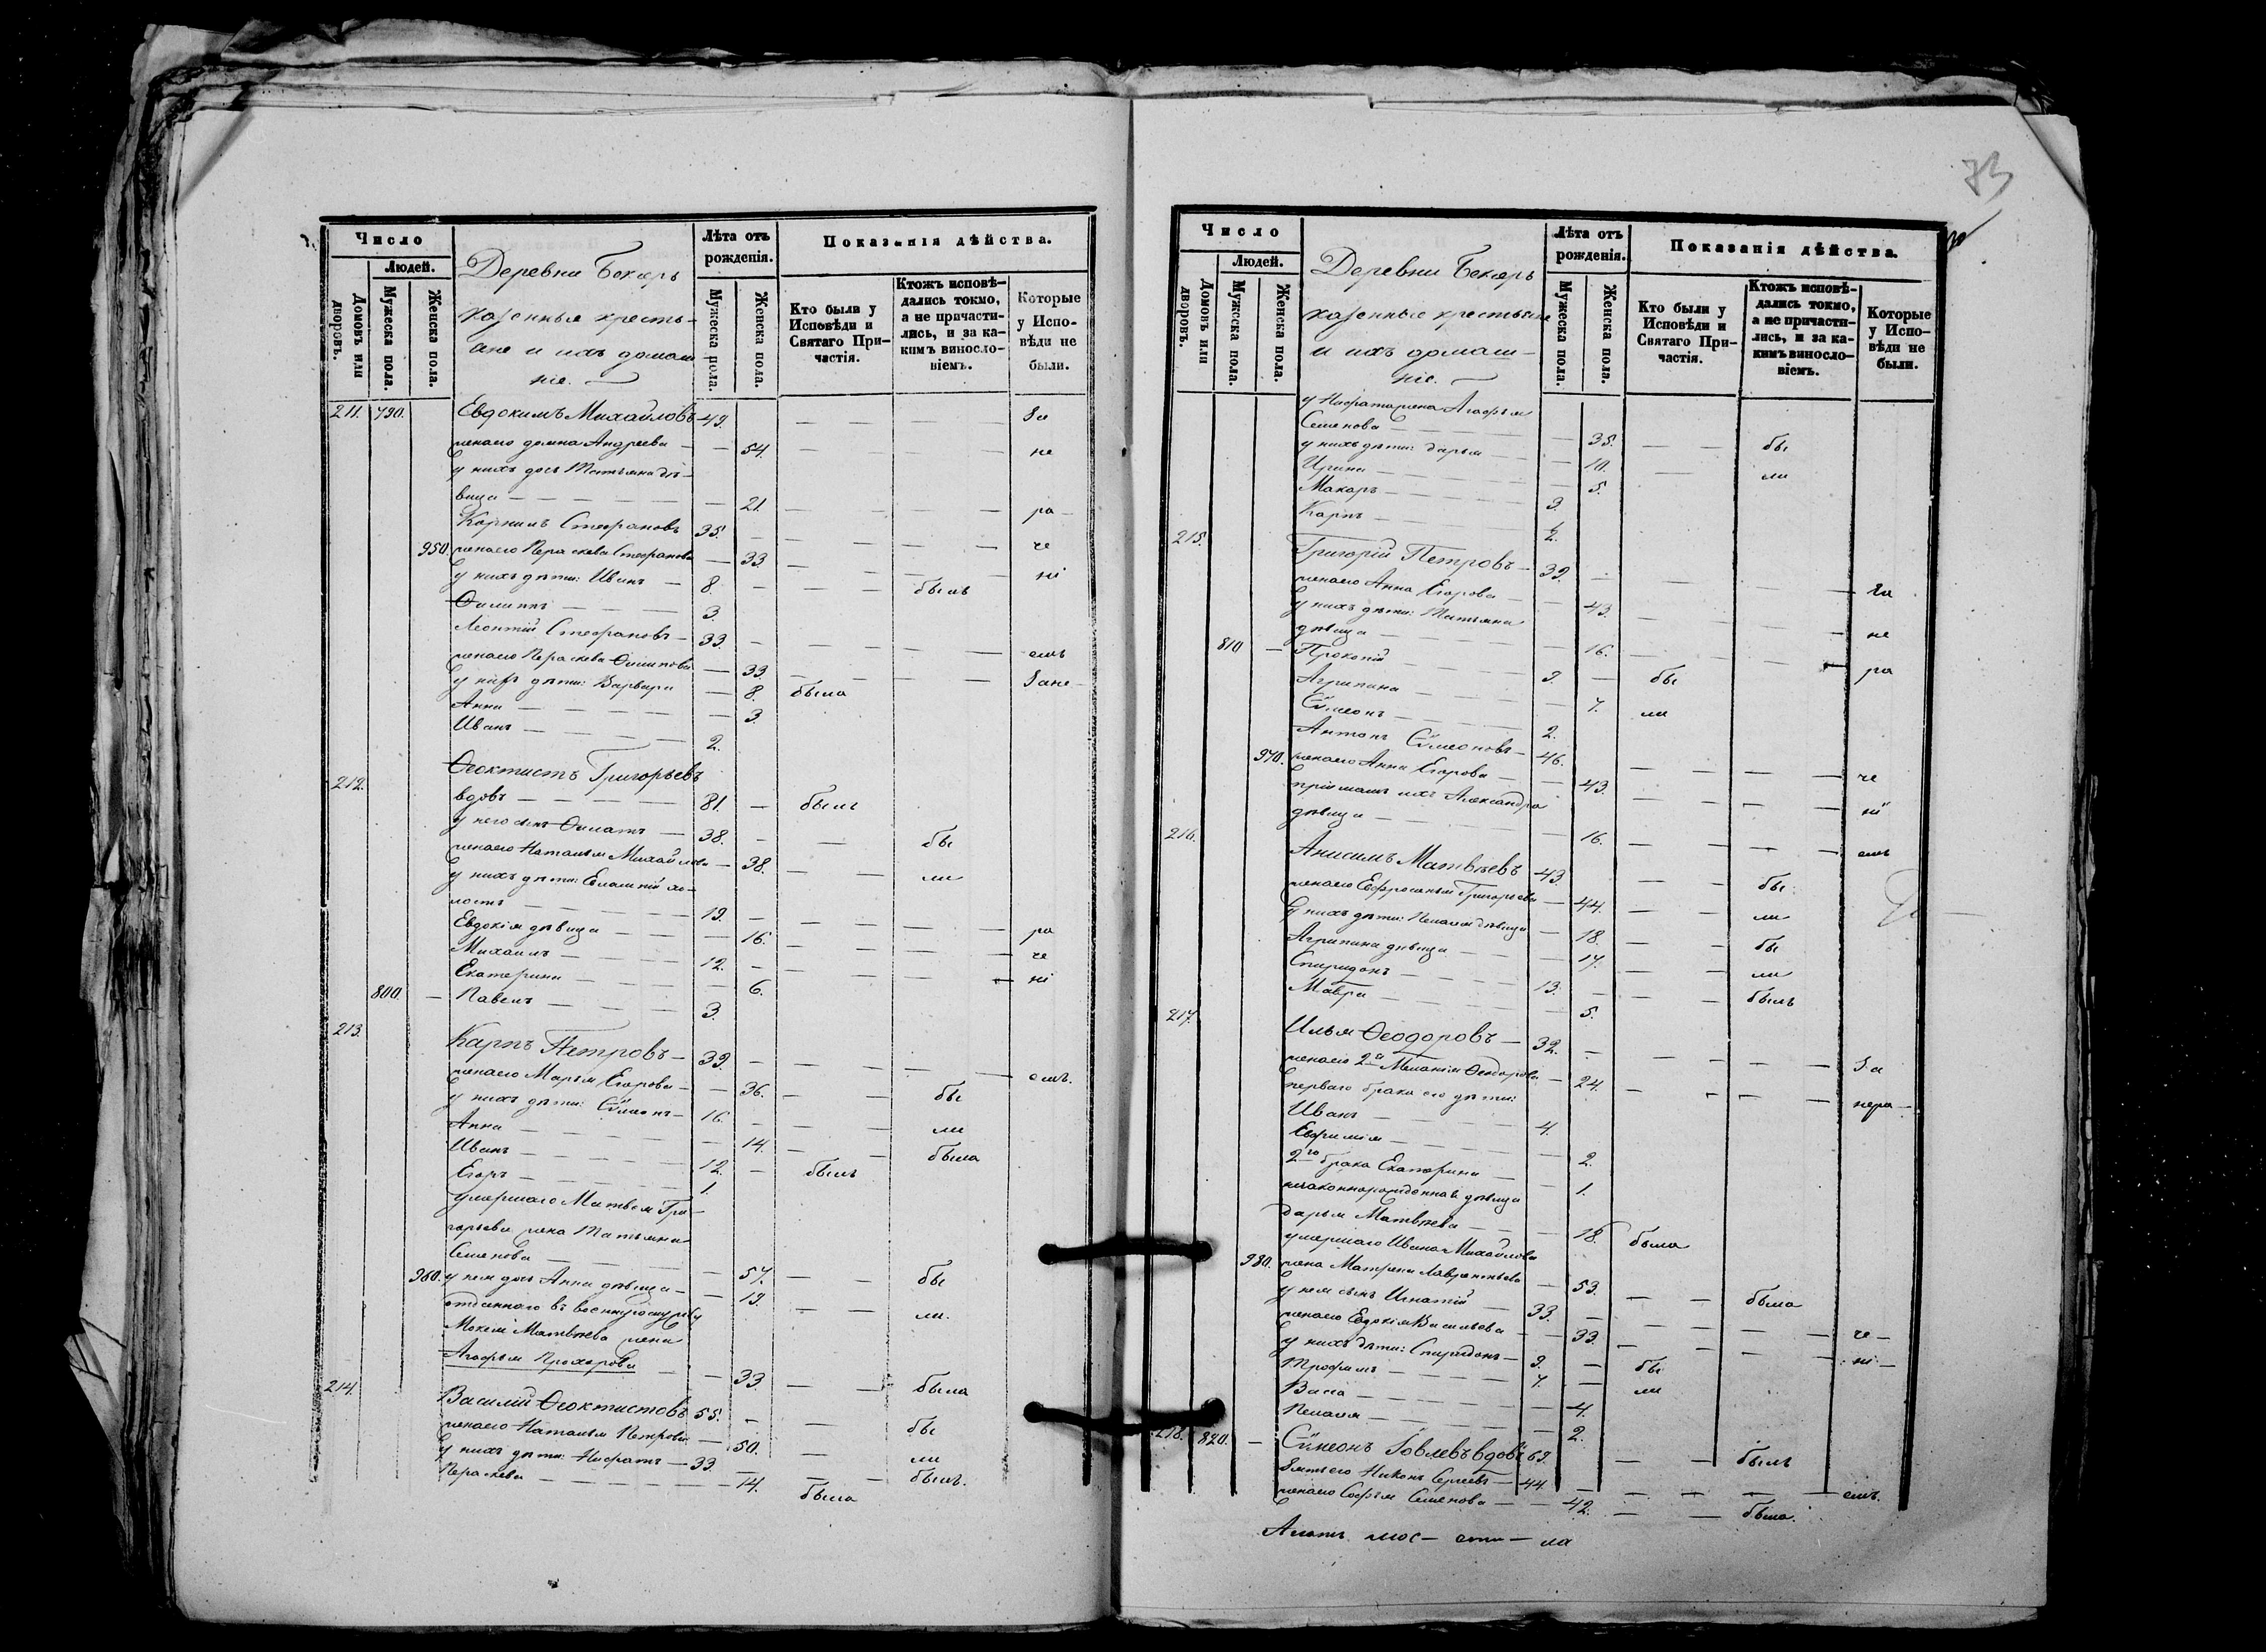 Число
Людей.
Домовъ или дворовъ.
Мужеска пола.
Женска пола.
Деревни Бекяръ
казенные кресть-
яне и ихъ домаш-
ніе.
Лѣта отъ рожденія.
Мужеска пола.
Женска пола.
Показанія дѣйства.
Кто были у Исповѣди и Святаго При-частія.
Ктожъ исповѣ-дались токмо, а не причасти-лись, и за ка-кимъ винословіемъ.
Которые у Испо-вѣди не были.
211. 790. Евдокимъ Михайловъ 49. — — — За
жена его Домна Андреева — 54. — — — не
у нихъ дочь Татьяна дѣ-
вица — 21. — — — ра-
Корнилъ Стефановъ 35. — — — че
950. жена его Параскева Стефанова — 33. — — — ні
у нихъ дѣти: Иванъ — 8. — — — былъ
Филиппъ — 3.
Леонтій Стефановъ — 33. — — — емъ
жена его Параскева Филипова — 33. — — — Зане-
у нихъ дѣти: Варвара — 8. была
Анна — 3.
Иванъ — 2.
212. Феоктистъ Григорьевъ
вдовъ — 81. — былъ
у него сынъ Филатъ — 38. — — бы
жена его Наталья Михайлова — 38. — — ли
у нихъ дѣти: Евлампій хо-
лостъ — 19. — — — ра
Евдокія дѣвица — 16. — — — че
Михаилъ — 12. — — — ні
Екатерина — 6.
800. — Павелъ — 3.
213. Карпъ Петровъ — 39. — — — емъ.
жена его Марья Егорова — 36. — — бы
у нихъ дѣти: Сѵмеонъ — 16. — — ли
Анна — 14. — — была
Иванъ — 12. — былъ
Егоръ — 1.
умершаго Матвея Гри-
горьева жена Татьяна
Семенова — 57. — — бы
960. у нея дочь Анна дѣвица — 19. — — ли.
отданнаго въ военную службу
Мокея Матвѣева жена
Агафья Прохорова — 33. — — была
214. Василій Феоктистовъ 55. — — бы
жена его Наталья Петрова — 50. — ли
у нихъ дѣти: Нифратъ — 33. — — былъ.
Параскева — 14. была
73
Число
Людей.
Домовъ или дворовъ.
Мужеска пола.
Женска пола.
Деревни Бекяръ
казенные крестьяне
и ихъ домаш-
ніе.
Лѣта отъ рожденія.
Мужеска пола.
Женска пола.
Показанія дѣйства.
Кто были у Исповѣди и Святаго При-частія.
Ктожъ исповѣ-дались токмо, а не причасти-лись, и за ка-кимъ винословіемъ.
Которые у Испо-вѣди не были.
у Нифрата жена Агафья
Семенова — 35. — — бы
у нихъ дѣти: Дарья — 10. — — ли
Ирина — 5.
Макаръ — 3.
Карпъ — ½.
215. Григорій Петровъ — 39. — — — За
жена его Анна Егорова — 43. — — — не
у нихъ дѣти: Татьяна
дѣвица — 16. — — — ра
810 — Прокопій — 9. — бы
Агрипина — 7. ли
Сѵмеонъ — 2.
Антонъ Сѵмеоновъ — 46. — — — че
970. жена его Анна Егорова — 43. — — — ні
пріймашъ ихъ Александра
дѣвица — 16. — — — емъ
216. Анисимъ Матвѣевъ 43. — — бы
жена его Евфросинья Григорьева — 44. — — ли
у нихъ дѣти: Пелагея дѣвица — 18. — — бы
Агрипина дѣвица — 17. — — ли
Спиридонъ — 13. — — былъ
Мавра — 5.
217. Илья Феодоровъ — 32. — — — За
жена его 2я Меланія Феодорова — 24. — — — нера-
перваго брака его дѣти:
Иванъ — 4.
Евфимія — 2.
2го брака Екатерина — 1.
незаконнорожденная дѣвица
Дарья Матвѣева — 18. была
умершаго Ивана Михайлова
980. жена Матрена Лаврентьева — 53. — — была
у нея сынъ Игнатій — 33. — — — че-
жена его Евдокія Васильева — 33. — — — ні-
у нихъ дѣти: Спиридонъ — 9. — бы
Трофимъ — 7. — ли
Васса — 4.
Пелагея — 2.
218. 820. — Сѵмеонъ Іовлевъ вдовъ 69. — — былъ
Зять его Никонъ Сергеевъ — 44. — — — емъ.
жена его Софья Семенова — 42. — — была.